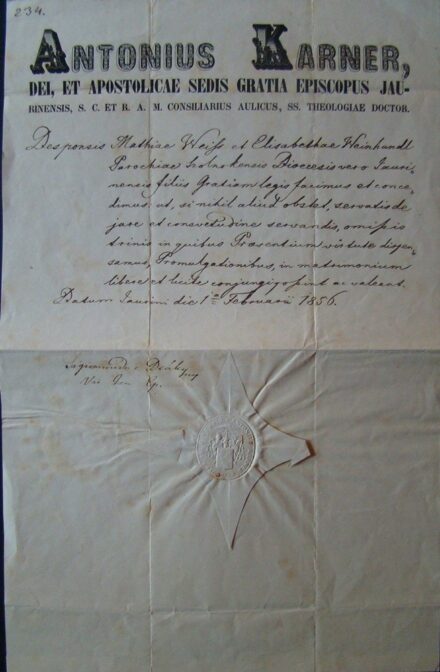 234.
ANTONIUS KARNER,
DEI, ET APOSTOLICAE SEDIS GRATIA EPISCOPUS JAU-
RINENSIS, S. C. ET R. A. M. CONSILIARIUS AULICUS, SS. THEOLOGIAE DOCTOR.
Desponsis Mathiae Weiss et Elisabethae Weinhandl
Parochiae Dioecesis vero Jauri-
nensis filiis Gratiam legis facimus et conce-
dimus, ut, si nihil aliud obstet, servatis de
jure et consvetudine servandis, omissis
trinis in quibus Praesentium virtute dispen-
samus, Promulgationibus, in matrimonium
libere et licite conjungi possint ac valeant.
Datum Jaurini die 1ma Februarii 1856.
Deáky
Vic. Gen. Ep.